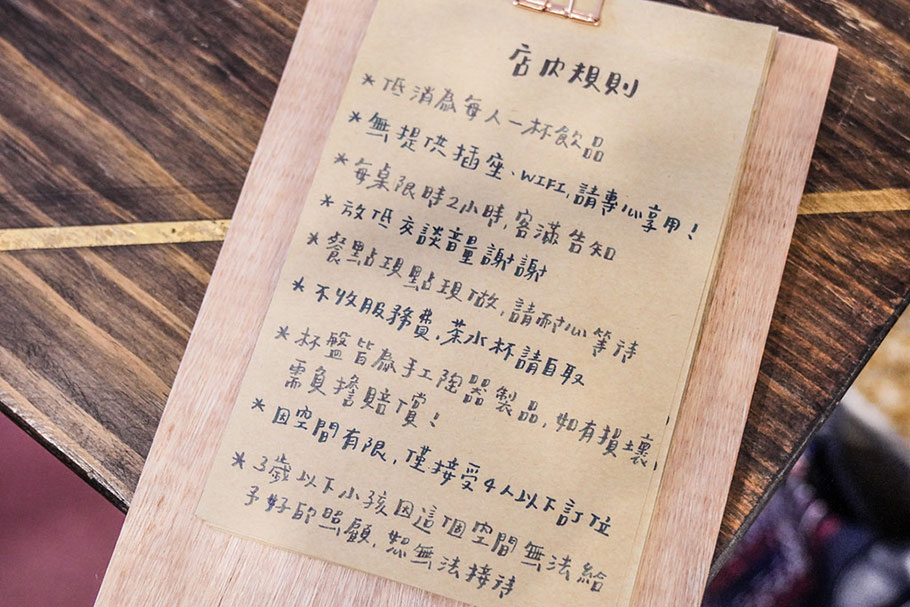 店內規則
* 低消為每人一杯飲品
* 無提供插座、WIFI,請專心享用!
* 每桌限時2小時,客滿告知
* 放低交談音量謝謝
* 餐點現點現做,請耐心等待
* 不收服務費,茶水杯請自取
* 杯盤皆為手工陶器製品,如有損壞,
需負擔賠償!
* 因空間有限,僅接受4人以下訂位
* 3歲以下小孩因這個空間無法給
予好的照顧,恕無法接待